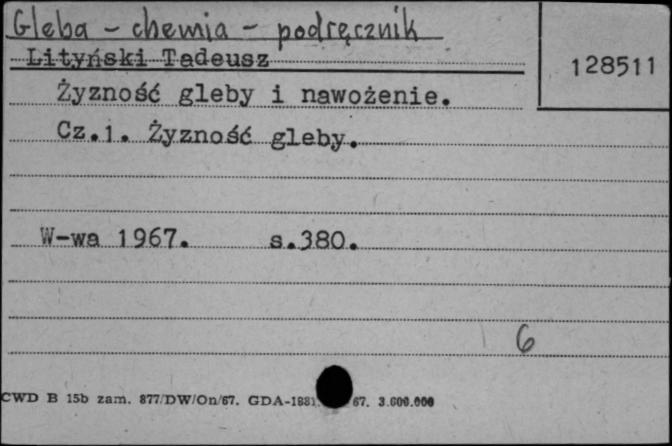 Gleba - chemia - podręcznik
Lityński Tadeusz
128511
Żyzność gleby i nawożenie.
Cz.1. Żyzność gleby.
W-wa 1967. s.380.
6
CWD B 15b zam. 877/DW/On/67. GDA-1881. 67. 3.600.000